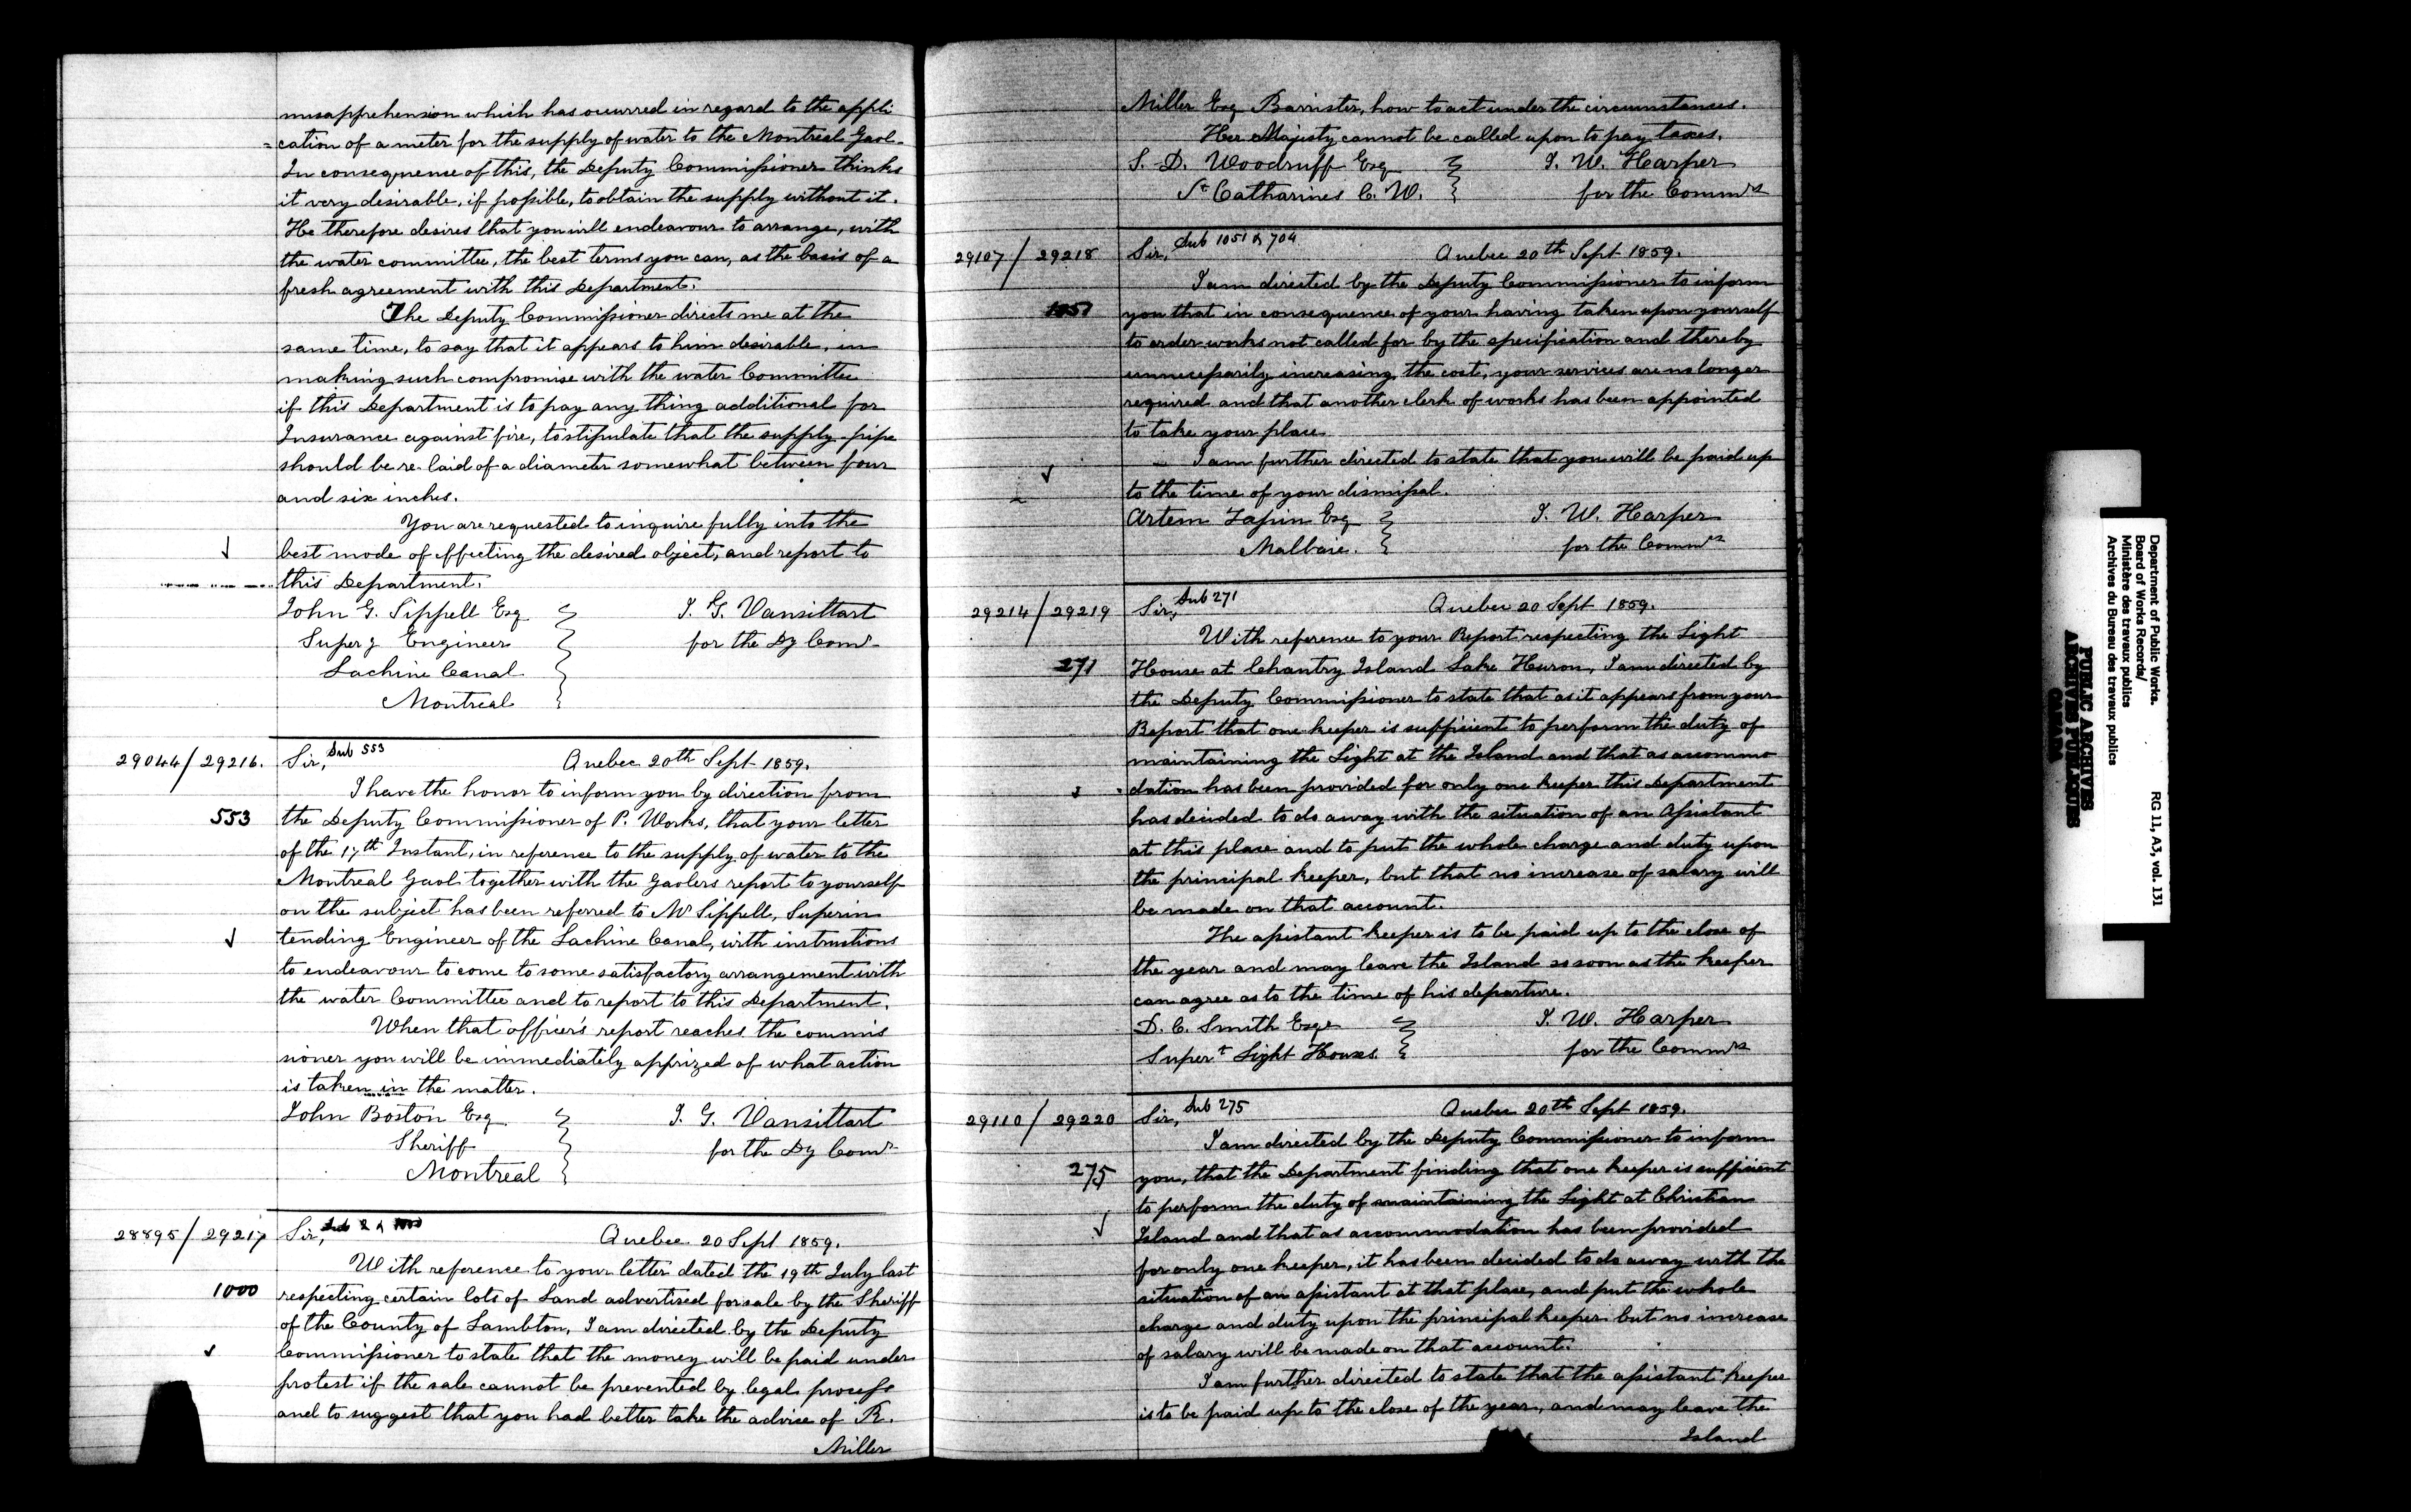 misapprehension which has occurred in regard to the appli
=cation of a meter for the supply of water to the Montreal Gaol.
In consequence of this, the Deputy Commissioner thinks
it very desirable, if possible, to obtain the supply without it.
He therefore desires that you will endeavour to arrange, with
the water committee, the best terms you can, as the basis of a
fresh agreement with this Department.
The Deputy Commissioner directs me at the
same time, to say that it appears to him desirable, in
making such compromise with the water Committee
if this Department is to pay any thing additional for
Insurance against fire, to stipulate that the supply pipe
should be re-laid of a diameter somewhat between four
and six inches.
You are requested to inquire fully into the
best mode of effecting the desired object, and report to
this Department.
John G. Sippell Esq J. G. Vansittart
Superg Engineer for the Dy Comr
Lachine Canal
Montreal
29044/29216. Sir, Sub 553 Quebec 20th Sept 1859.
I have the honor to inform you by direction from
553 the Deputy Commissioner of P. Works, that your letter
of the 17th Instant, in reference to the supply of water to the
Montreal Gaol together with the Gaolers report to yourself
on the subject has been referred to Mr Sippell, Superin
tending Engineer of the Lachine Canal, with instructions
to endeavour to come to some satisfactory arrangement with
the water Committee and to report to this Department.
When that officer's report reaches the commis
sioner you will be immediately apprized of what action
is taken in the matter.
John Boston Esq J. G. Vansittart
Sheriff for the Dy Comr
Montreal
28895/29217 Sir, Quebec 20 Sept 1859.
With reference to your letter dated the 19th July last
1000 respecting certain lots of Land advertised for sale by the Sheriff
of the County of Lambton, I am directed by the Deputy
Commissioner to state that the money will be paid under
protest if the sale cannot be prevented by legal process
and to suggest that you had better take the advice of R.
Miller
Miller Esq Barrister, how to act under the circumstances.
Her Majesty cannot be called upon to pay taxes.
S. D. Woodruff Esq J. W. Harper
St Catharines C. W. for the Commrs
29107/29218 Sir, Sub 1051 & 704 Quebec 20th Sept 1859.
I am directed by the Deputy Commissioner to inform
1051 you that in consequence of your having taken upon yourself
to order works not called for by the specification and thereby
unnecessarily increasing the cost, your services are no longer
required and that another clerk of works has been appointed
to take your place
I am further directed to state that you will be paid up
to the time of your dismissal.
Artem Lapin Esq J. W. Harper
Malbaie. for the Commrs
29214/29219 Sir, Sub 271 Quebec 20 Sept 1859.
With reference to your Report respecting the Light
271 House at Chantry Island Lake Huron, I am directed by
the Deputy Commissioner to state that as it appears from your
Report that one keeper is sufficient to perform the duty of
maintaining the Light at the Island and that as accommo
dation has been provided for only one keeper this Department
has decided to do away with the situation of an Assistant
at this place and to put the whole charge and duty upon
the principal keeper, but that no increase of salary will
be made on that account.
The assistant keeper is to be paid up to the close of
the year and may leave the Island as soon as the keeper
can agree as to the time of his departure.
D. C. Smith Esqe J. W. Harper
Supert Light Houses. for the Commrs
29110/29220 Sir, Sub 275 Quebec 20th Sept 1859.
I am directed by the Deputy Commissioner to inform
275 you, that the Department finding that one keeper is sufficient
to perform the duty of maintaining the Light at Christian
Island and that as accommodation has been provided
for only one keeper, it has been decided to do away with the
situation of an assistant at that place, and put the whole
charge and duty upon the principal keeper but no increase
of salary will be made on that account.
I am further directed to state that the assistant keeper
is to be paid up to the close of the year, and may leave the
Island
Department of Public Works.
Board of Works Records/
Ministère des travaux publics
Archives du Bureau des travaux publics
RG 11, A3, vol. 131
PUBLIC ARCHIVES
ARCHIVES PUBLIQUES
CANADA